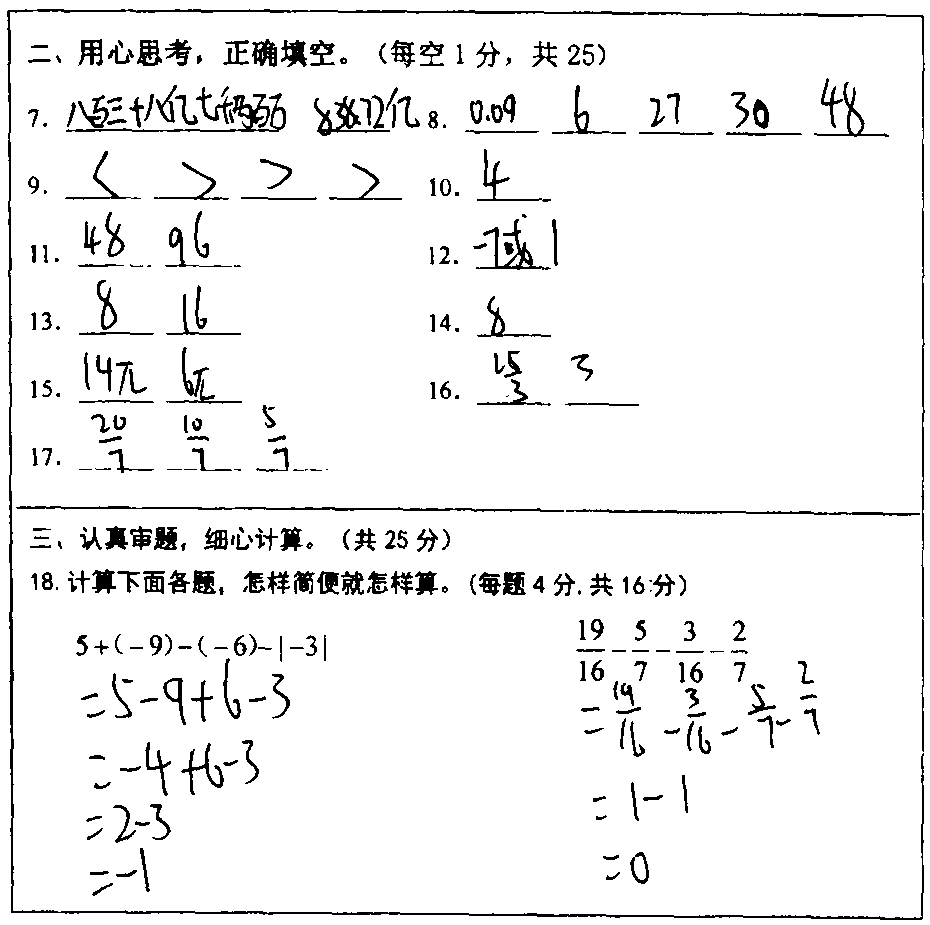 二、用心思考，正确填空。（每空1分，共25）
7. 八百三十八亿七千 838.72亿 8. 0.09 6 27 30 48
9. < > > > 10. 4
11. 48 96 12. -7或1
13. 8 16 14. 8
15. 14π 6π 16. 25/3 3
17. 20/7 10/7 5/7
三、认真审题，细心计算。（共25分）
18. 计算下面各题，怎样简便就怎样算。(每题4分,共16分)
5+(-9)-(-6)-|-3| 19/16-5/7-3/16-2/7
=5-9+6-3 =19/16-3/16-5/7-2/7
=-4+6-3 =1-1
=2-3 =0
=-1